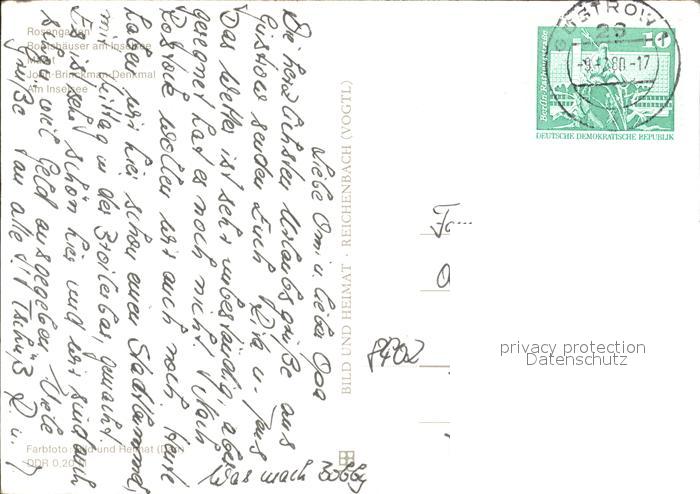 Rosengarten
Bootshäuser am Inselsee
Markt
John-Brinckman-Denkmal
Am Inselsee
Liebe Omi u. lieber Opa
Die herzlichsten Urlaubsgrüße aus
Güstrow senden Euch Rita u. Jens
Das Wetter ist sehr unbeständig, aber
geregnet hat es noch nicht! Nach
Rostock wollen wir auch noch. Heute
haben wir hier schon einen Stadtbummel
mit Mittag in der Broilerbar, gemacht.
Es ist sehr schön hier und wir sind auch
schon viel Geld ausgegeben. Viele
Grüße an alle! Tschüß R. u. J
Was mach Bobby
Farbfoto: Bild und Heimat
DDR 0,20 M
BILD UND HEIMAT · REICHENBACH (VOGTL)
GÜSTROW 1
26
-9.12.80-17
10
Berlin, Rathausstraße
DEUTSCHE DEMOKRATISCHE REPUBLIK
Fa
8402
privacy protection
Datenschutz